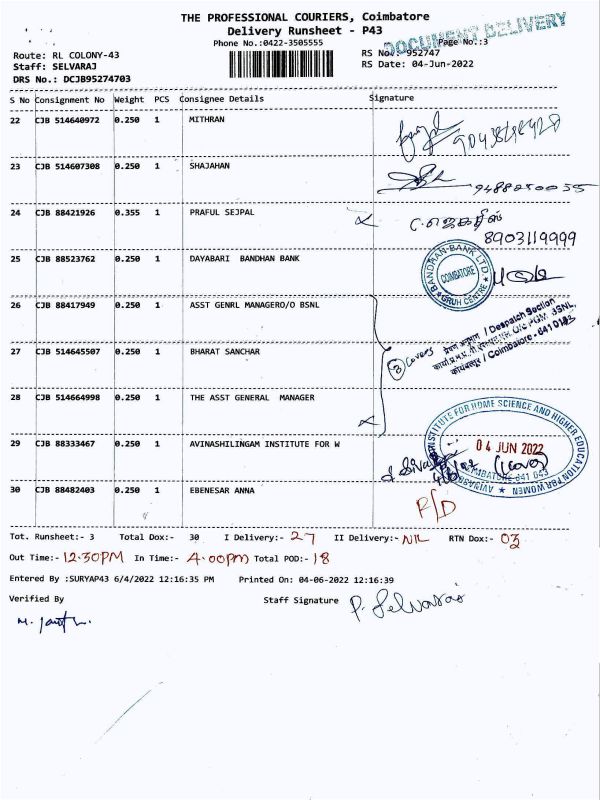 THE PROFESSIONAL COURIERS, Coimbatore
Delivery Runsheet - P43
DOCUMENT DELIVERY
Phone No.:0422-3505555
Page No.:3
Route: RL COLONY-43
RS No.: 952747
Staff: SELVARAJ
RS Date: 04-Jun-2022
DRS No.: DCJB95274703
S No Consignment No Weight PCS Consignee Details Signature
22 CJB 514640972 0.250 1 MITHRAN
23 CJB 514607308 0.250 1 SHAJAHAN
9488250055
24 CJB 88421926 0.355 1 PRAFUL SEJPAL
8903119999
25 CJB 88523762 0.250 1 DAYABARI BANDHAN BANK
BANDHAN BANK LTD
COIMBATORE
GRUH CENTRE
26 CJB 88417949 0.250 1 ASST GENRL MANAGERO/O BSNL
/ Despatch Section
27 CJB 514645507 0.250 1 BHARAT SANCHAR
3 Covers
कोयंबत्तूर / Coimbatore - 641 043
28 CJB 514664998 0.250 1 THE ASST GENERAL MANAGER
29 CJB 88333467 0.250 1 AVINASHILINGAM INSTITUTE FOR W
AVINASHILINGAM INSTITUTE FOR HOME SCIENCE AND HIGHER EDUCATION FOR WOMEN
04 JUN 2022
(1 cover)
COIMBATORE 641 043
30 CJB 88482403 0.250 1 EBENESAR ANNA
R/D
Tot. Runsheet:- 3 Total Dox:- 30 I Delivery:- 27 II Delivery:- NIL RTN Dox:- 03
Out Time:- 12.30PM In Time:- 4.00PM Total POD:- 18
Entered By :SURYAP43 6/4/2022 12:16:35 PM Printed On: 04-06-2022 12:16:39
Verified By Staff Signature P. Selvaraj